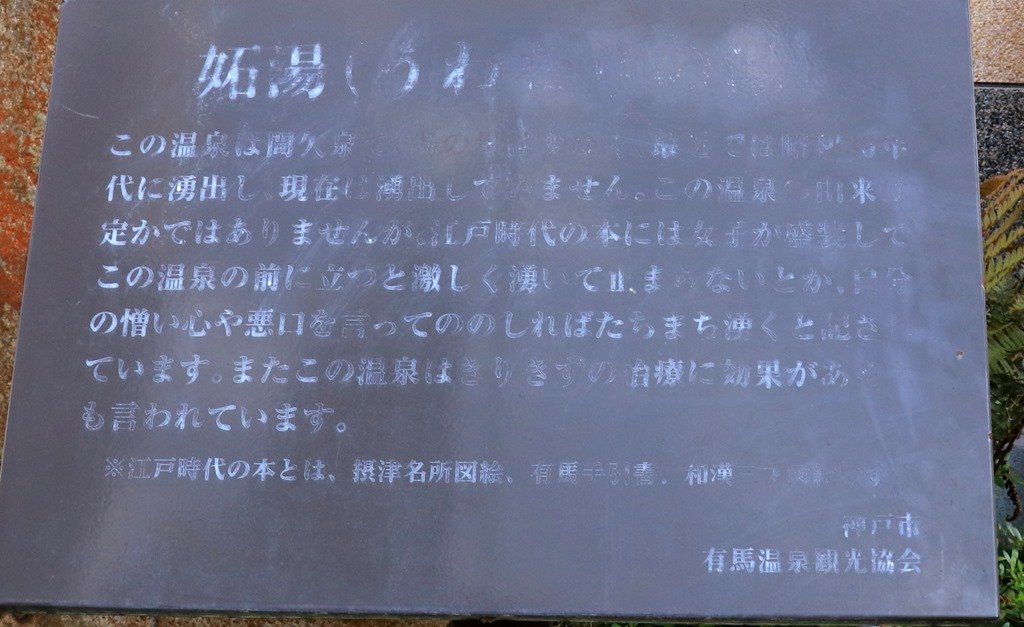 妬湯(うわ
この温泉は間欠泉 では昭和 年
代に湧出し、現在は湧出していません。この温泉 由来
定かではありませんが、江戸時代の本には女子が盛装して
この温泉の前に立つと激しく湧いて止まらないとか、自分
の憎い心や悪口を言ってののしればたちまち湧くと記さ
ています。またこの温泉はきりきずの治療に効果があ
も言われています。
※江戸時代の本とは、摂津名所図絵、有馬手引書、和漢
神戸市
有馬温泉観光協会